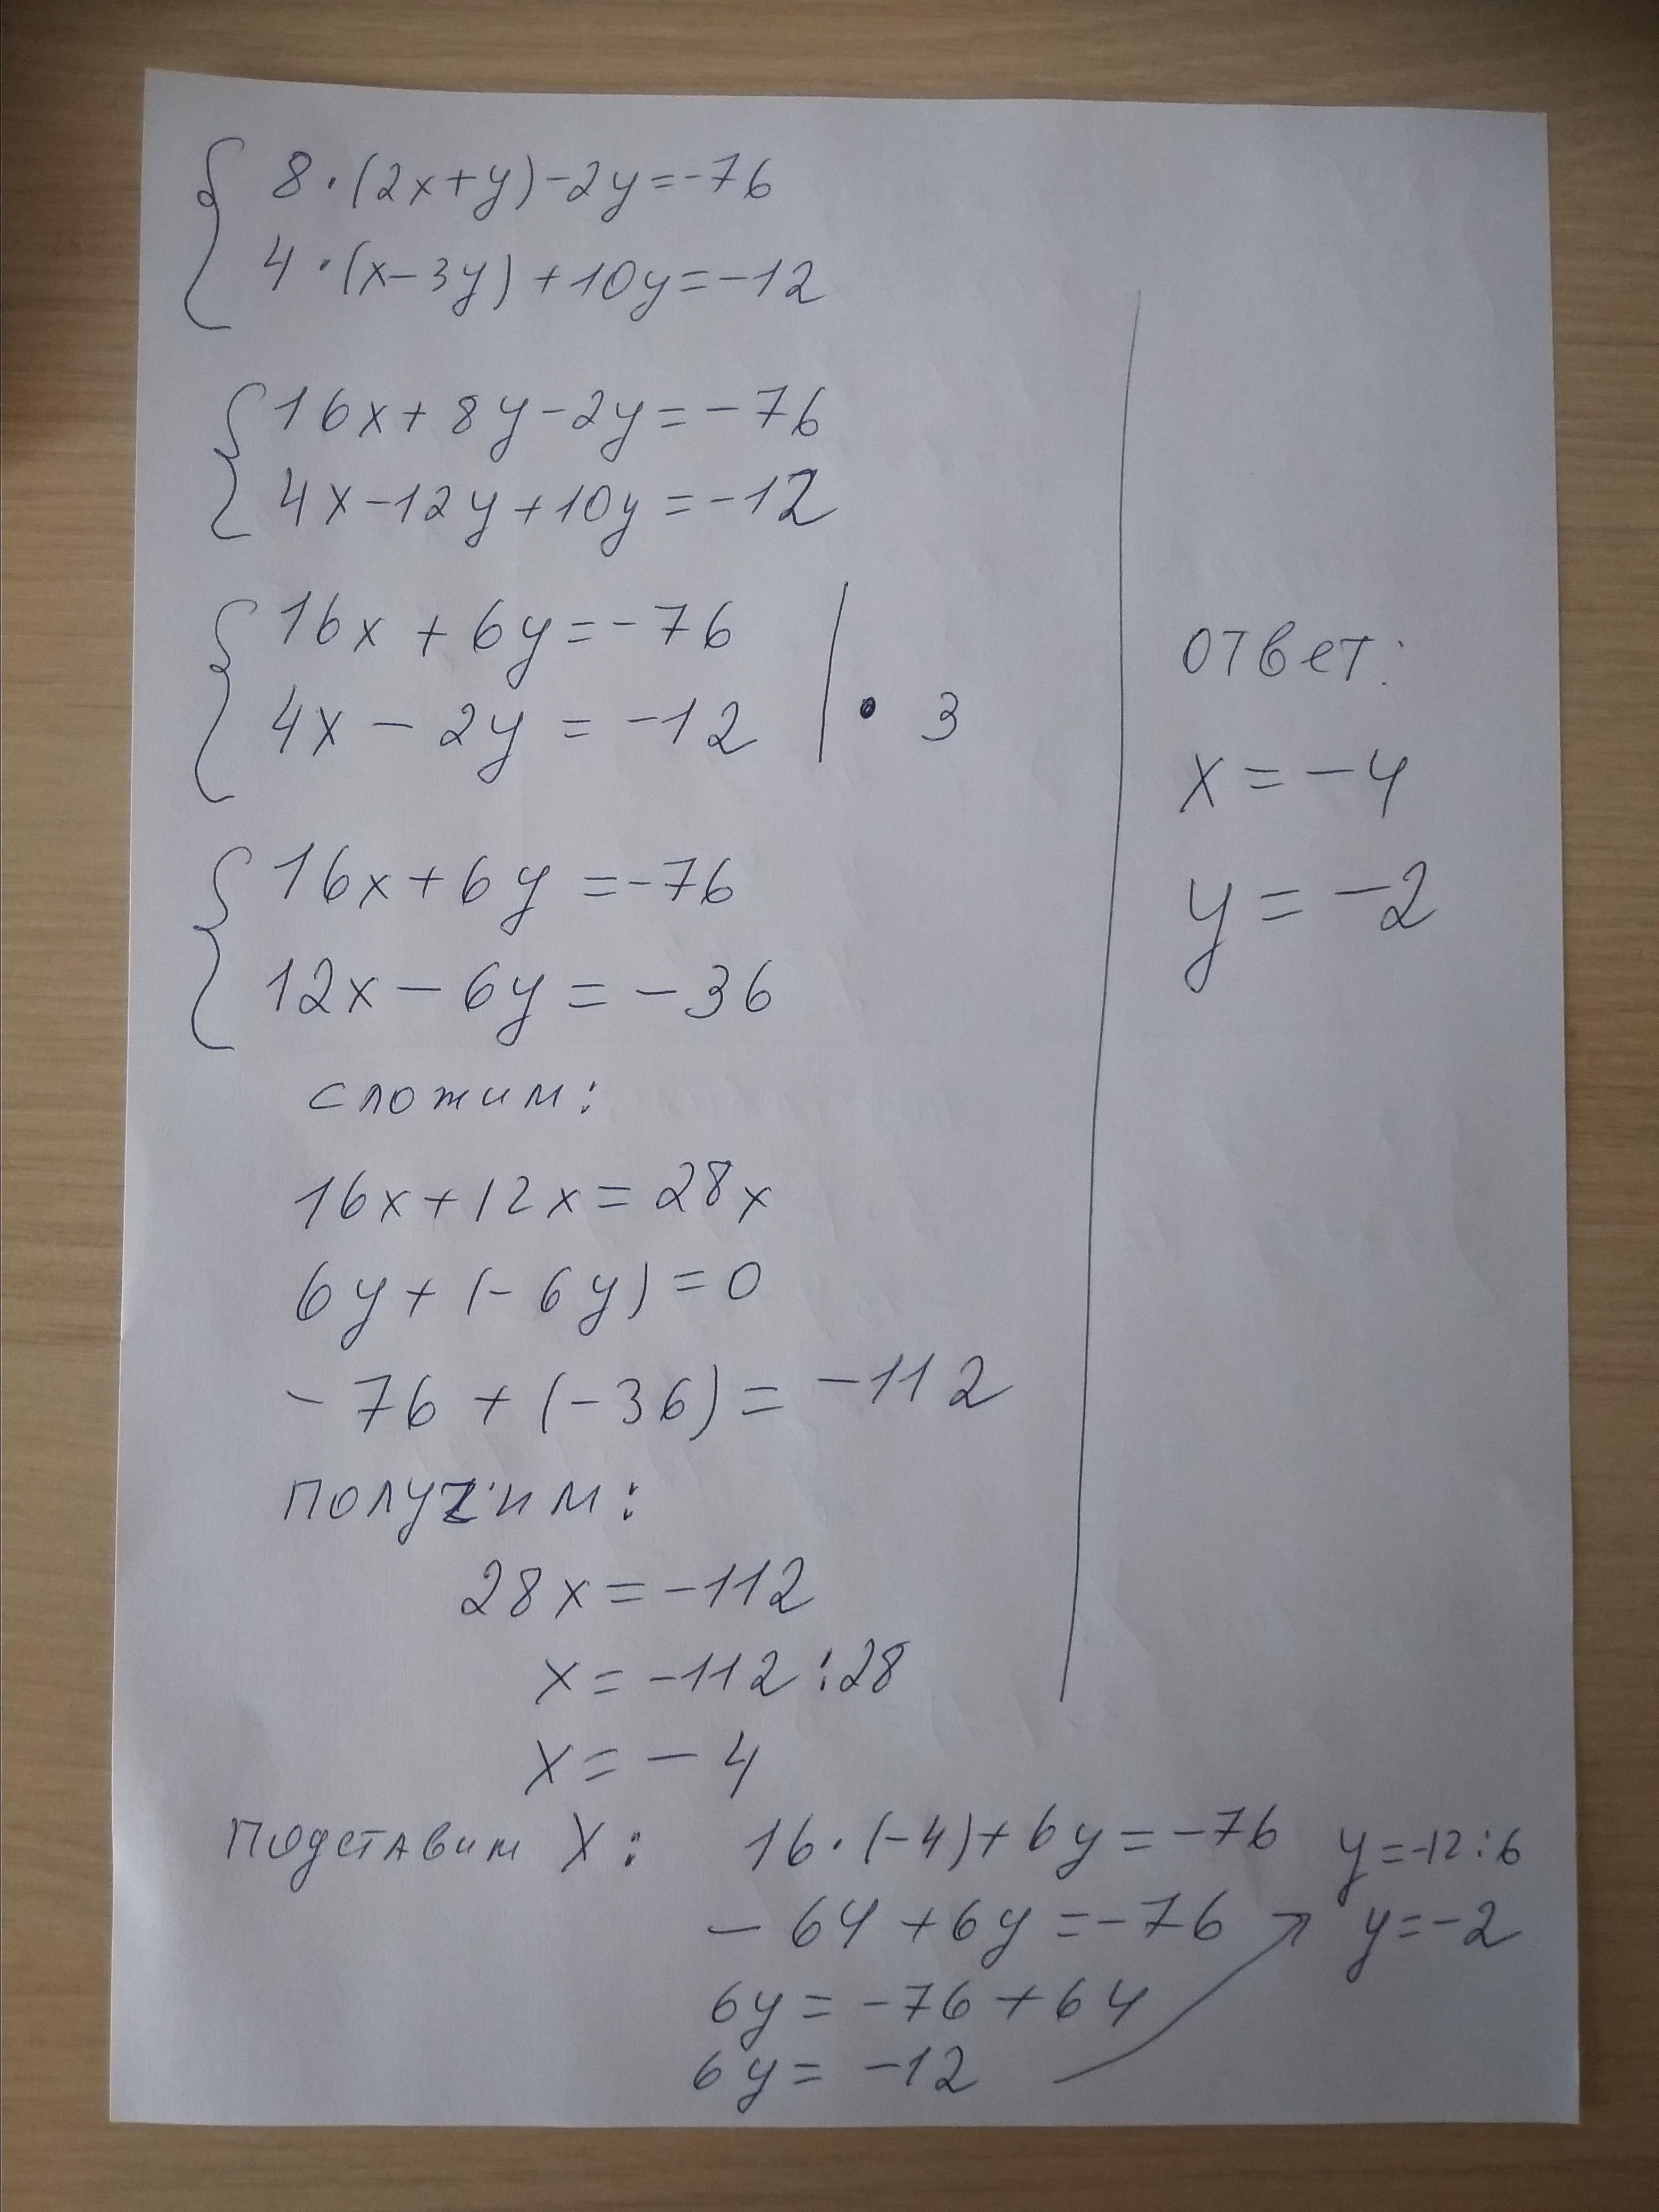 8·(2x+y)-2y=-76
4·(x-3y)+10y=-12
16x+8y-2y=-76
4x-12y+10y=-12
16x+6y=-76
4x-2y=-12 | · 3
16x+6y=-76
12x-6y=-36
сложим:
16x+12x=28x
6y+(-6y)=0
-76+(-36)=-112
получим:
28x=-112
x=-112:28
x=-4
Подставим X: 16·(-4)+6y=-76
-64+6y=-76
6y=-76+64
6y=-12
y=-12:6
y=-2
ответ:
x=-4
y=-2